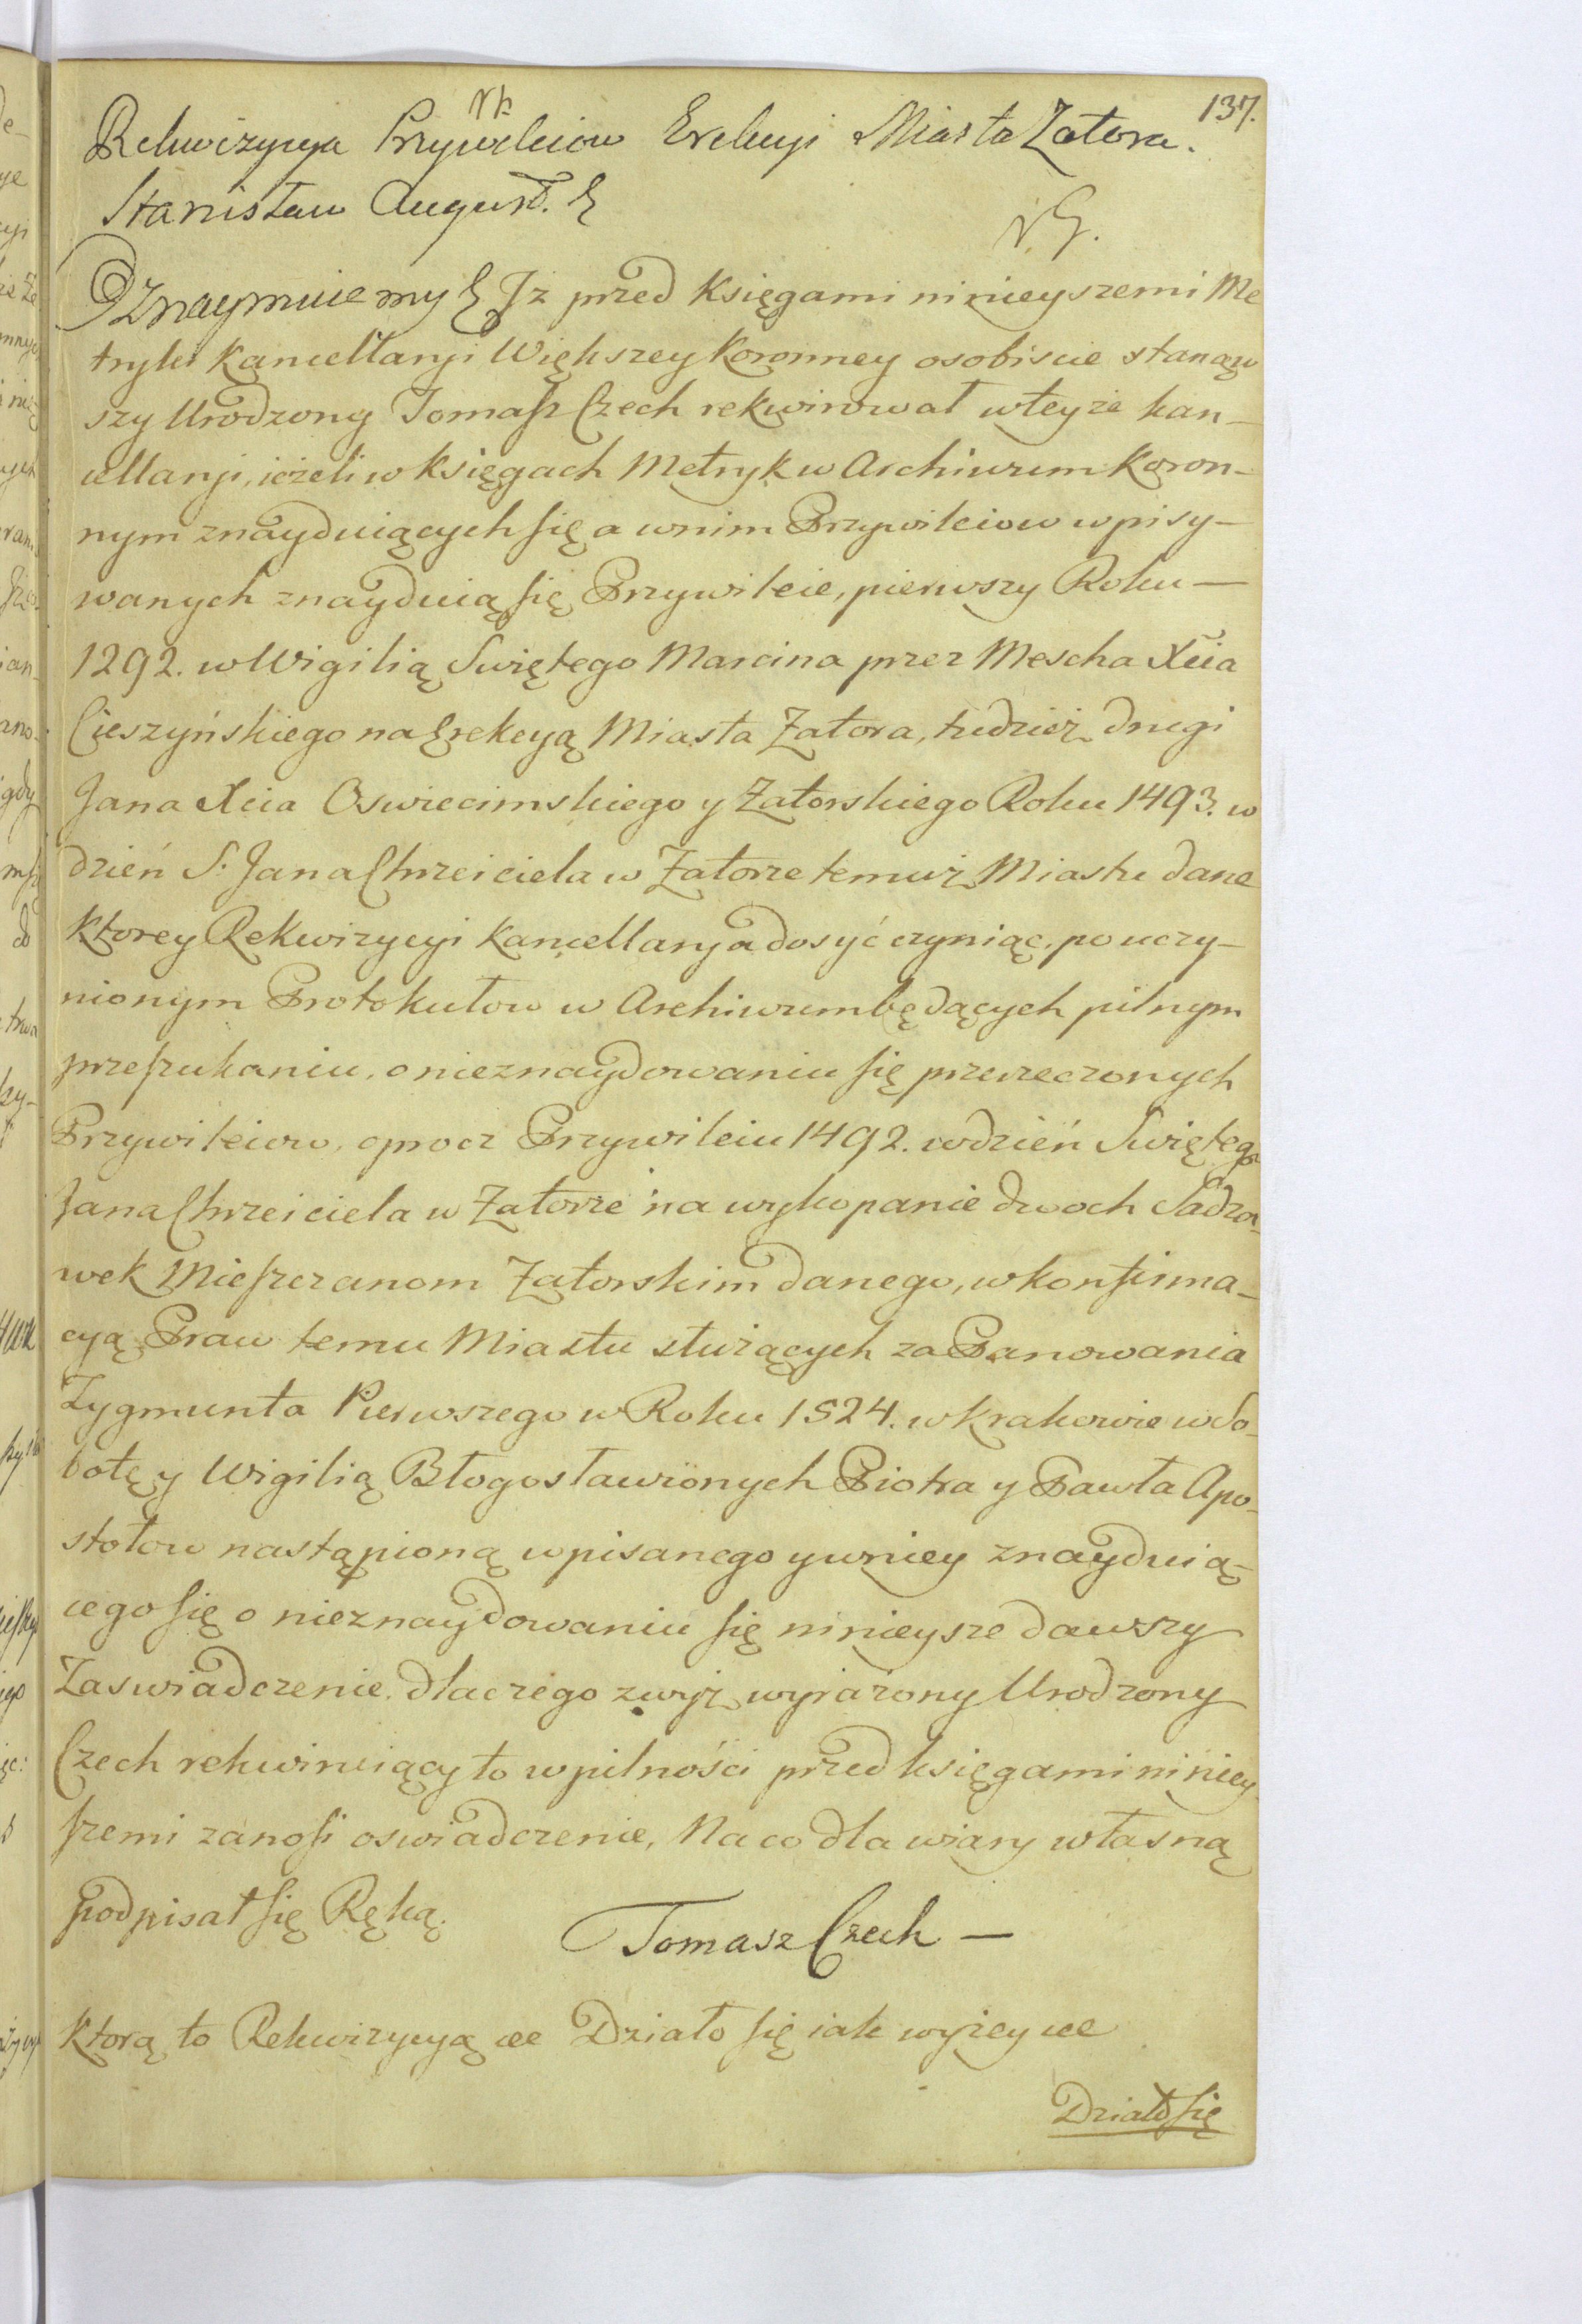 137.
Rekwizycya Przywileiow Erekcyi Miasta Zatora.
Stanisław August. &
Oznaymuiemy & Jż przed Księgami ninieyszemi Me
tryki Kancellaryi Większey Koronney osobiscie stanąw
szy Urodzony Tomasz Czech rekwirował w teyże kan-
cellaryi, ieżeli w Księgach Metryk w Archiwum Koron-
nym znayduiących się a w nim Przywileiow wpisy-
wanych znayduią się Przywileie, pierwszy Roku —
1292. w Wigilią Swiętego Marcina przez Mescha Xcia
Cieszyńskiego na Erekcyą Miasta Zatora, tudzież drugi
Jana Xcia Oswiecimskiego y Zatorskiego Roku 1493. w
dzień S. Jana Chrzciciela w Zatorze temuż Miastu dane
Ktorey Rekwizycyi Kancellarya dosyć czyniąc, po uczy-
nionym Protokułow w Archiwum będących pilnym
przeszukaniu, o nieznaydowaniu się przerzeczonych
Przywileiow, oprocz Przywileiu 1492. w dzień Swiętego
Jana Chrzciciela w Zatorze na wykopanie dwoch Sadza-
wek Mieszczanom Zatorskim danego, w konfirma-
cyą Praw temu Miastu służących za Panowania
Zygmunta Pierwszego w Roku 1524. w Krakowie w So-
botę y Wigilią Błogosławionych Piotra y Pawła Apo-
stołow nastąpioną wpisanego y w niey znayduią-
cego się o nieznaydowaniu się ninieysze dawszy
Zaswiadczenie. dla czego zwyż wyrażony Urodzony
Czech rekwiruiący to w pilności przed księgami niniey
szemi zanosi oswiadczenie, Na co dla wiary własną
podpisał się Ręką.
Tomasz Czech —
Ktorą to Rekwizycyą &c Działo się iak wyżey &c
Działo się